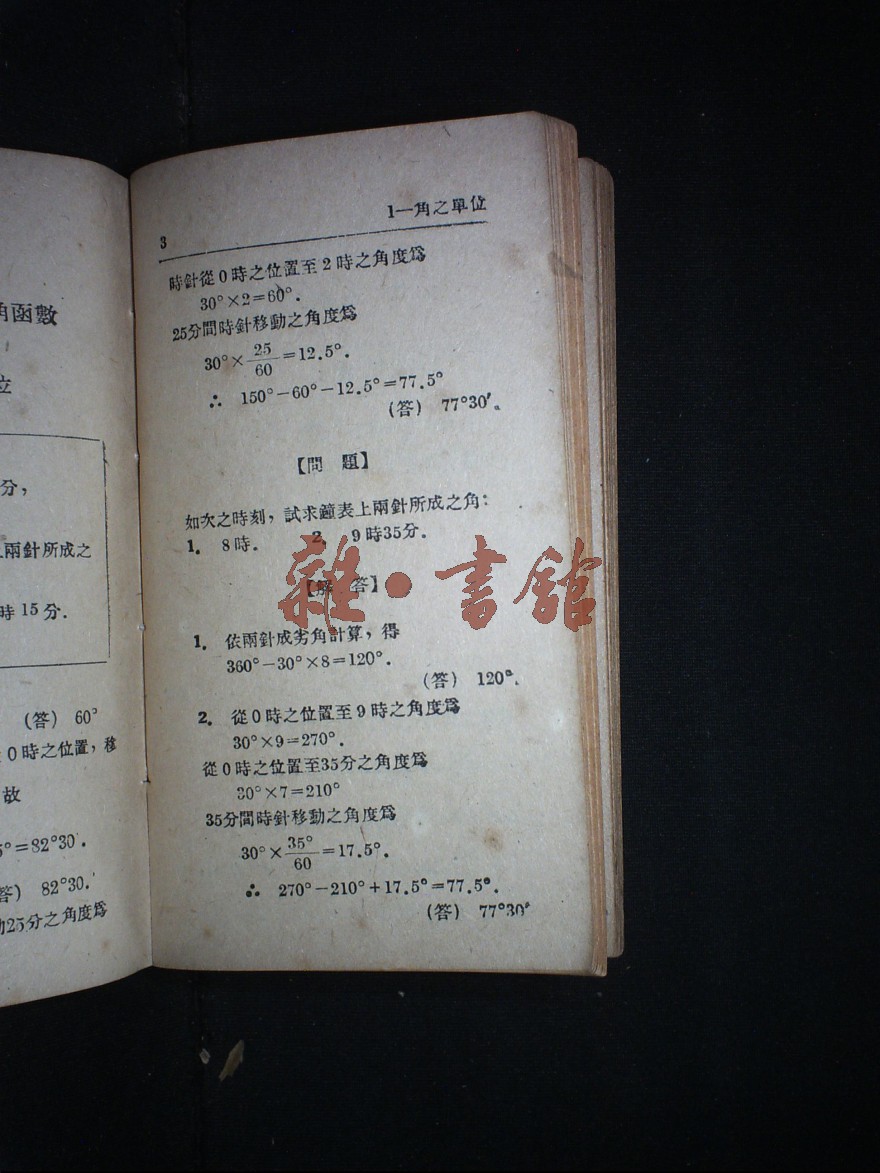 角函數
位
分,
上兩針所成之
時 15 分.
(答) 60°
0 時之位置, 移
故
5°=82°30'.
答) 82°30.'
25分之角度爲
1—角之單位
3
時針從 0 時之位置至 2 時之角度爲
30°×2=60°.
25分間時針移動之角度爲
30°×25/60=12.5°.
∴ 150°−60°−12.5°=77.5°
(答) 77°30'.
【問 題】
如次之時刻, 試求鐘表上兩針所成之角:
1. 8 時. 2. 9 時35分.
【解 答】
雜·書館
1. 依兩針成劣角計算, 得
360°−30°×8=120°.
(答) 120°.
2. 從 0 時之位置至 9 時之角度爲
30°×9=270°.
從 0 時之位置至35分之角度爲
30°×7=210°
35分間時針移動之角度爲
30°×35°/60=17.5°.
∴ 270°−210°+17.5°=77.5°.
(答) 77°30'